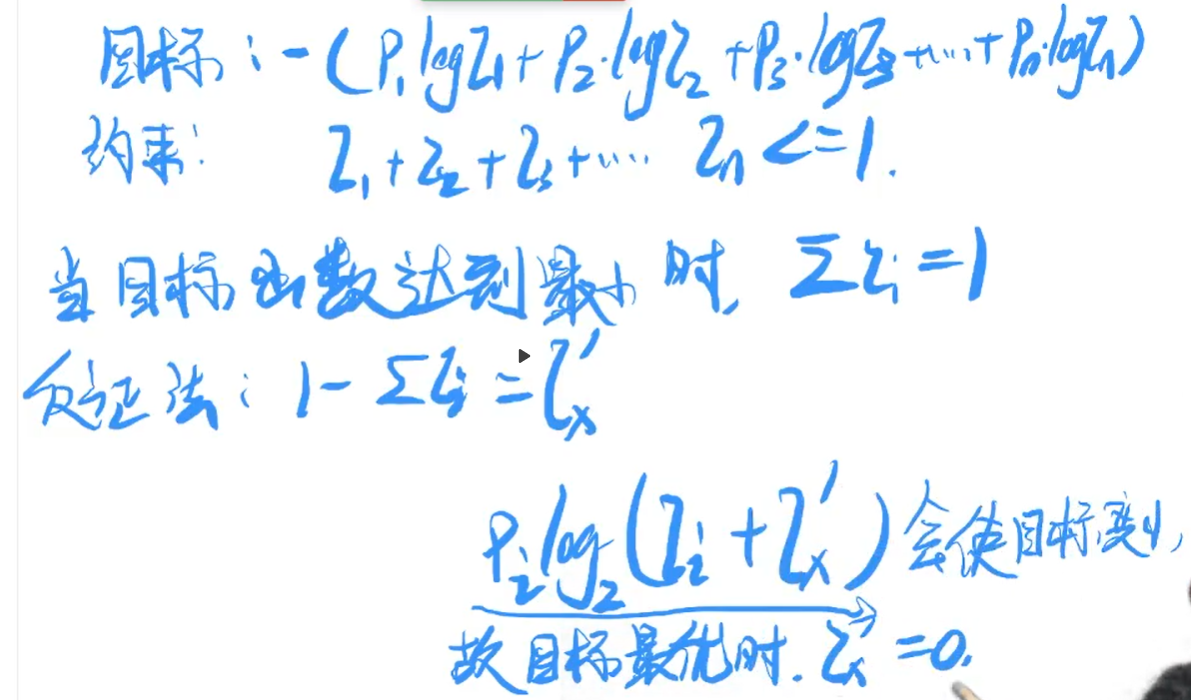 目标：-(P₁logZ₁+P₂·logZ₂+P₃·logZ₃+……+Pₙ·logZₙ)
约束： Z₁+Z₂+Z₃+…… Zₙ<=1.
当目标函数达到最小时, ΣZᵢ=1
反证法：1-ΣZᵢ=Zₓ'
Pᵢlog₂(Zᵢ+Zₓ')会使目标变小,
故目标最优时.Zₓ'=0.